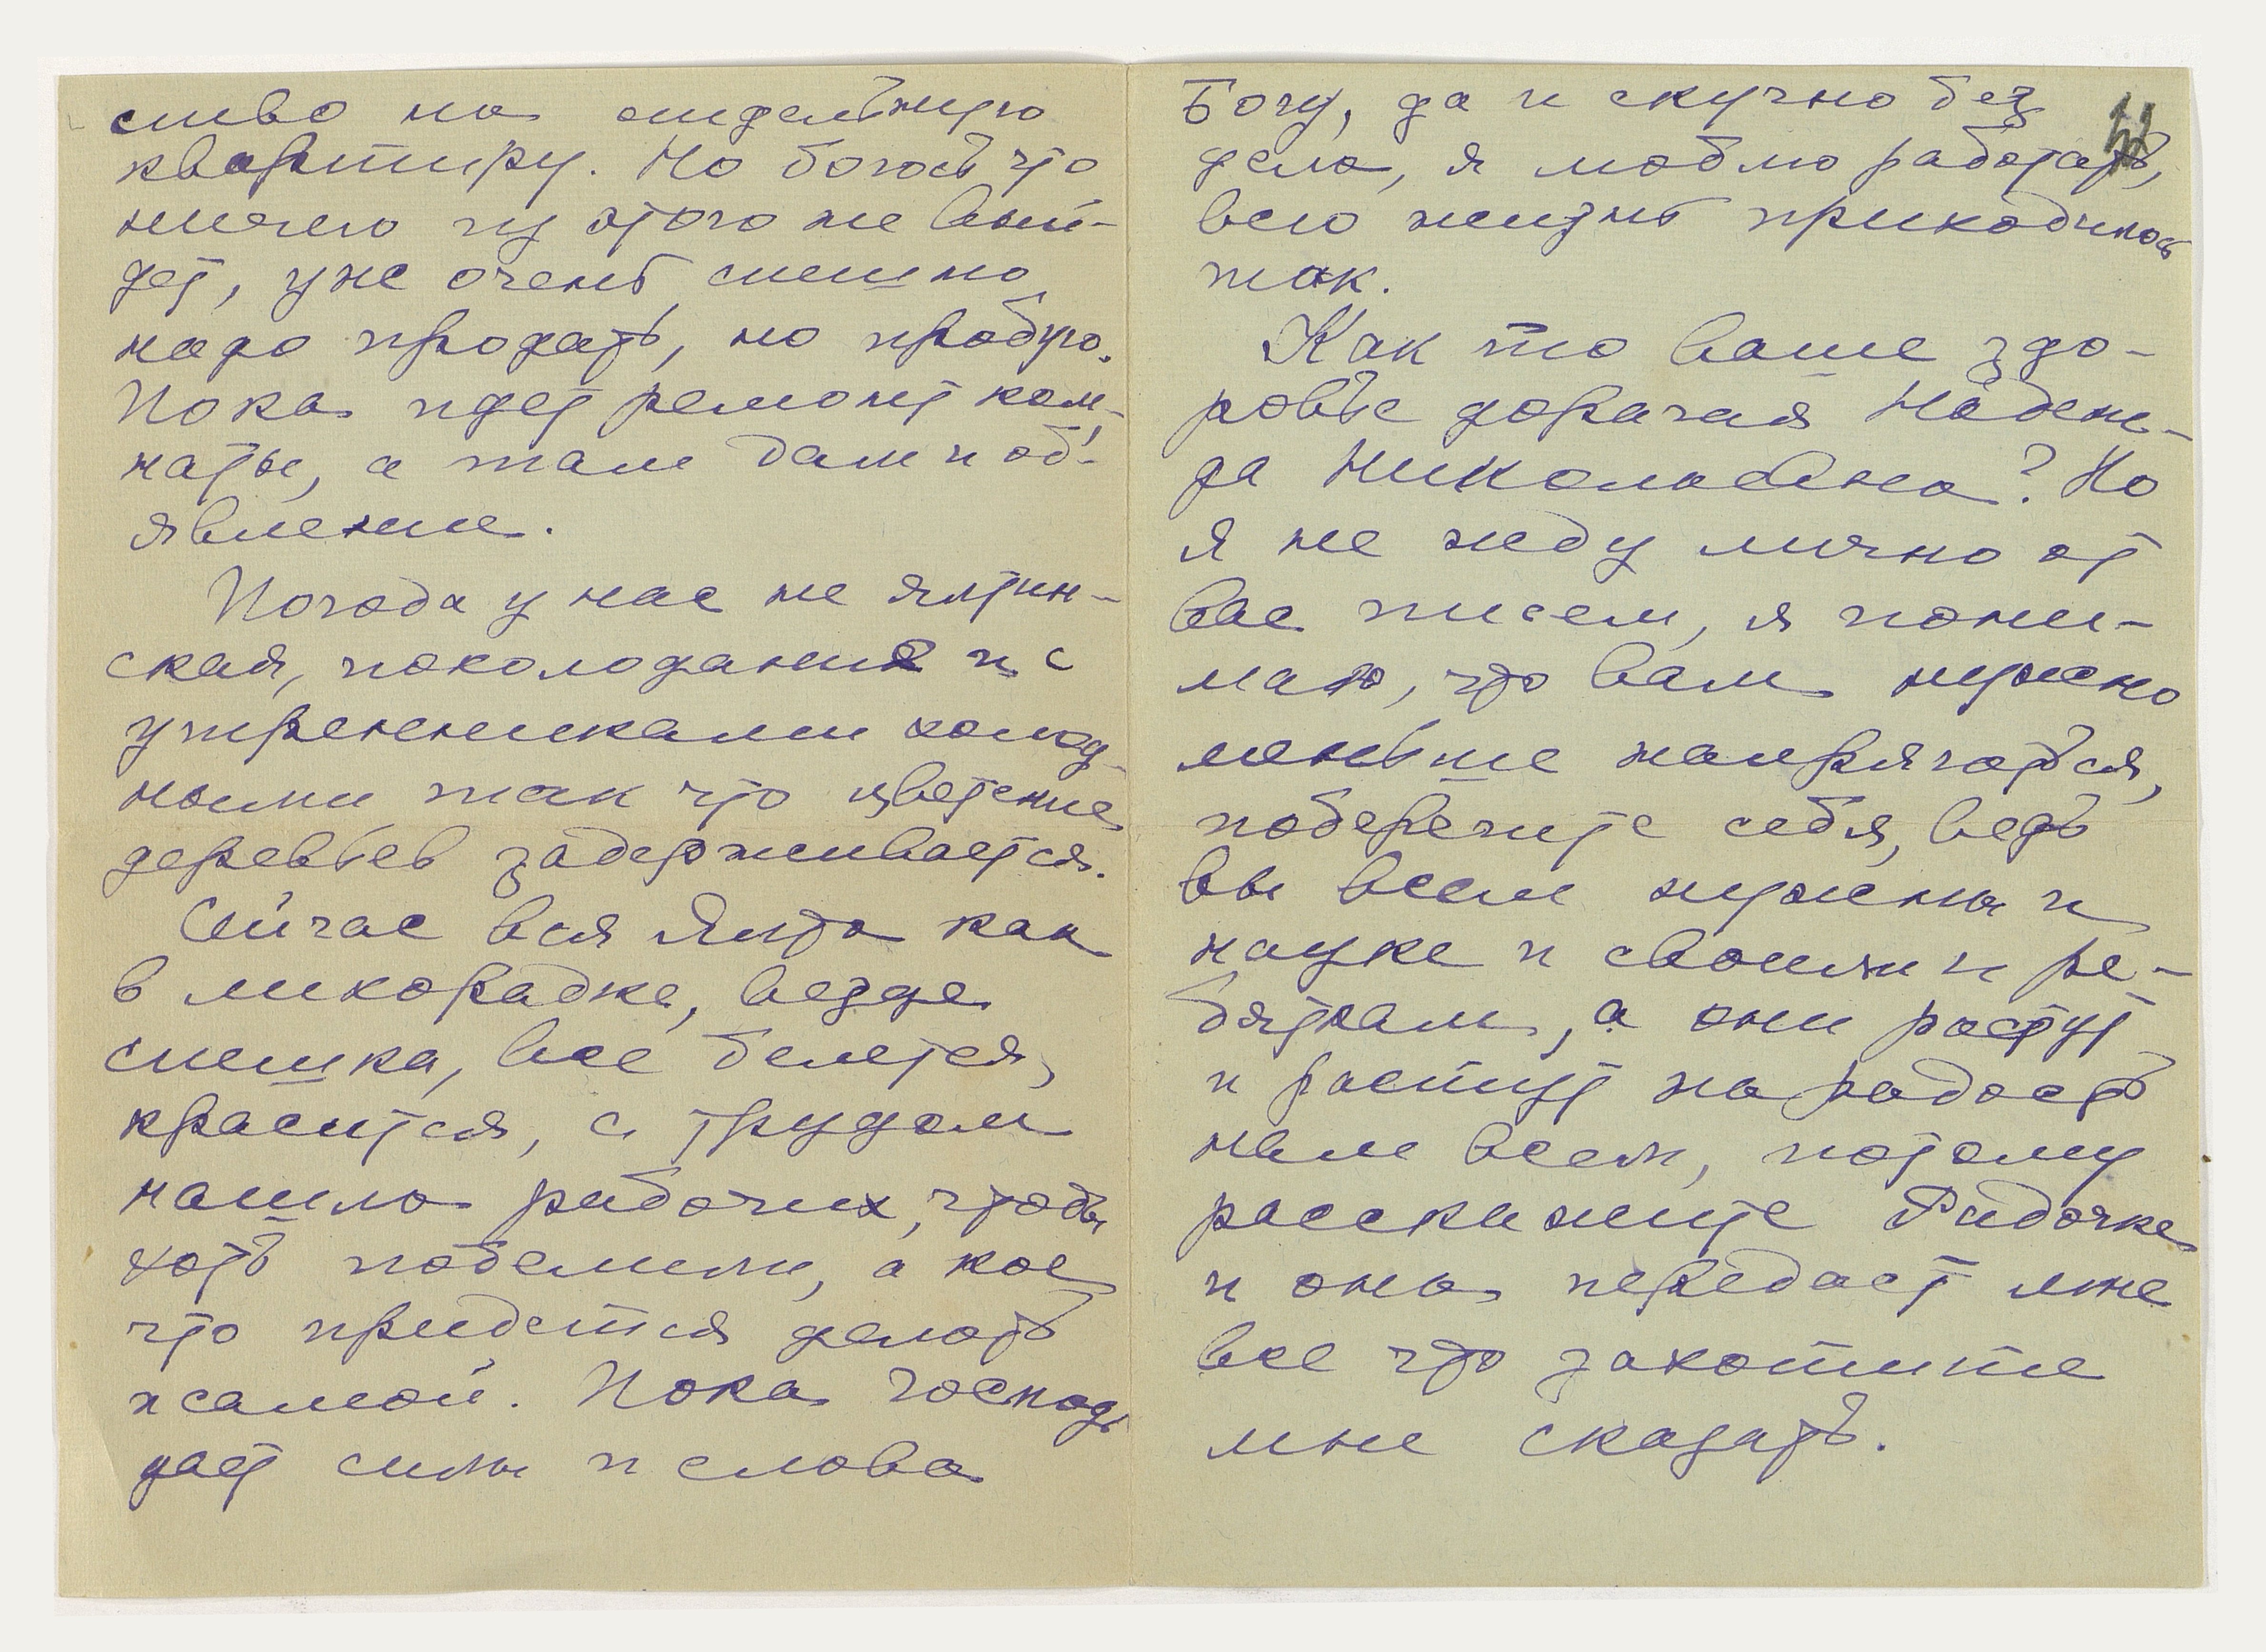 ство на отдельную
квартиру. Но боюсь что
ничего из этого не вый-
дет, уже очень спешно
надо продать, но пробую.
Пока идет ремонт ком-
наты, а там дам и об'-
явление.
Погода у нас не ялтин-
ская, похолодания и с
утренниками холод-
ными так что цветение
деревьев задерживается.
Сейчас вся Ялта как
в лихорадке, везде
спешка, все белется,
красится, с трудом
нашла рабочих, чтобы
хоть побелили, а кое
что придется делать
и самой. Пока Господь
дает силы и слова
Богу, да и скучно без
дела, я люблю работать,
всю жизнь приходилось
так.
Как то ваше здо-
ровье дорогая Надеж-
да Николаевна? Но
я не жду лично от
вас писем, я пони-
маю, что вам нужно
меньше напрягаться,
поберегите себя, ведь
вы всем нужны и
науке и своим и ре-
бяткам, а они растут
и растут на радость
нам всем, потому
расскажите Рибочке
и она передаст мне
все что захотите
мне сказать.